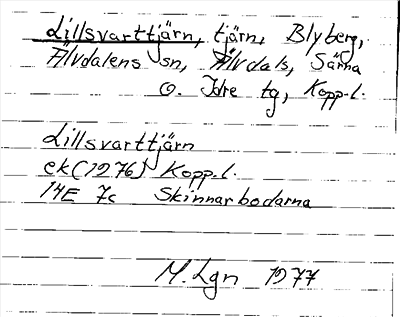 Lillsvarttjärn, tjärn, Blyberg,
Älvdalens sn, Älvdals, Särna
o. Idre tg, Kopp.l.
Lillsvarttjärn
ek (1976) Kopp.l.
14E 7c Skinnarbodarna
M. Lgn 1977